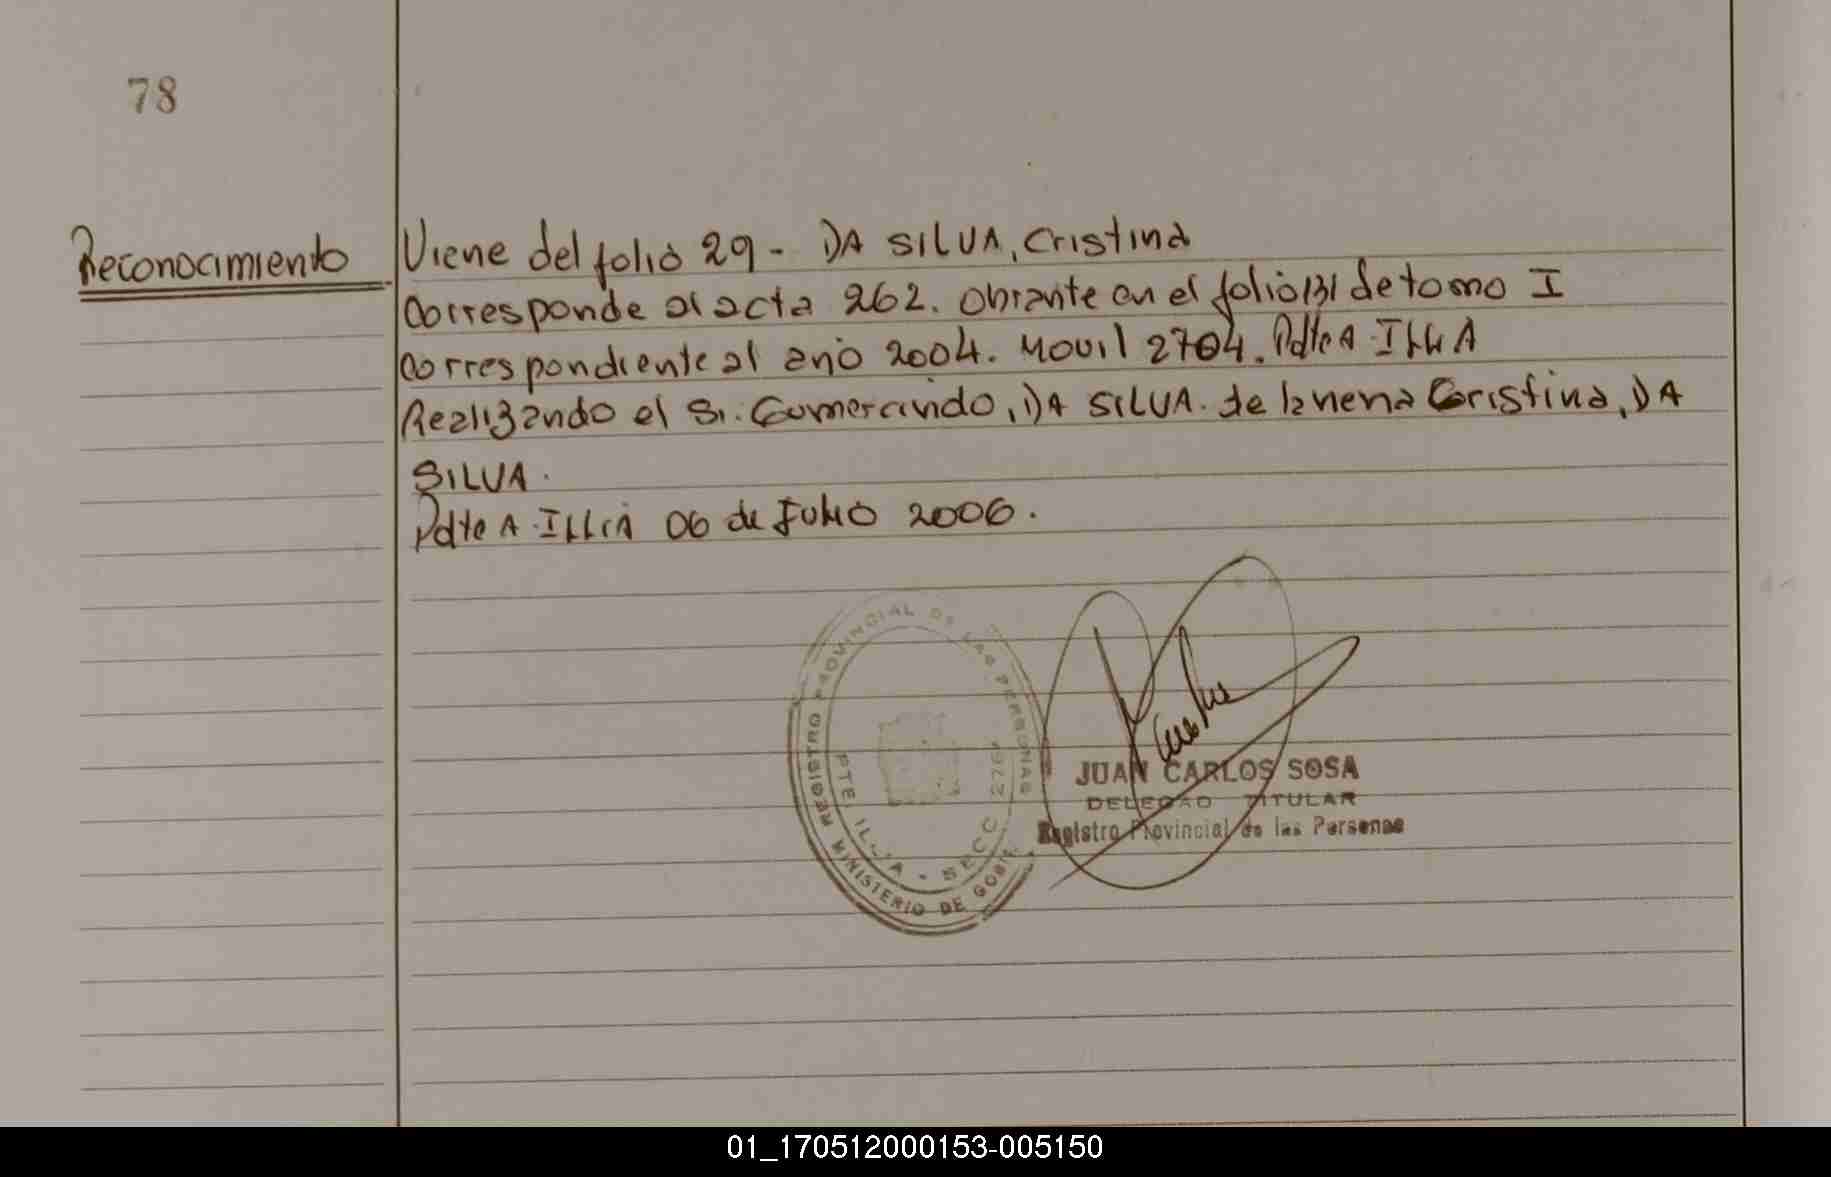 78
Reconocimiento
Viene del folio 29 - DA SILVA, Cristina
Corresponde al acta 262. Obrante en el folio 131 de tomo I
Correspondiente al año 2004. Movil 2704. Pdte A. Illia
Realizando el Sr. Gumercindo, DA SILVA. de la nena Cristina, DA
SILVA.
Pdte A. ILLIA 06 de Julio 2006.
REGISTRO PROVINCIAL DE LAS PERSONAS
MINISTERIO DE GOBIE
PTE. ILLIA - SECC.
JUAN CARLOS SOSA
DELEGAD TITULAR
Registro Provincial de las Personas
01_170512000153-005150